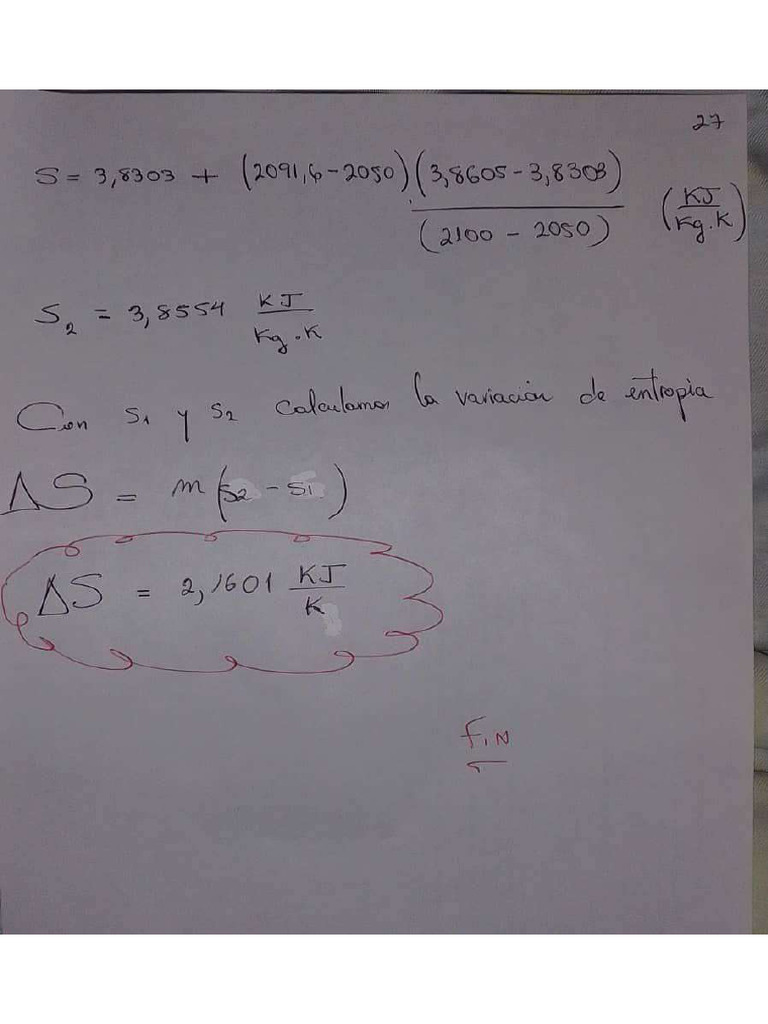 27
S = 3,8303 + (2091,6 - 2050) (3,8605 - 3,8303) / (2100 - 2050) (KJ / Kg.K)
S2 = 3,8554 KJ / Kg.K
Con S1 y S2 calculamos la variación de entropia
ΔS = m (S2 - S1)
ΔS = 2,1601 KJ / K
FiN